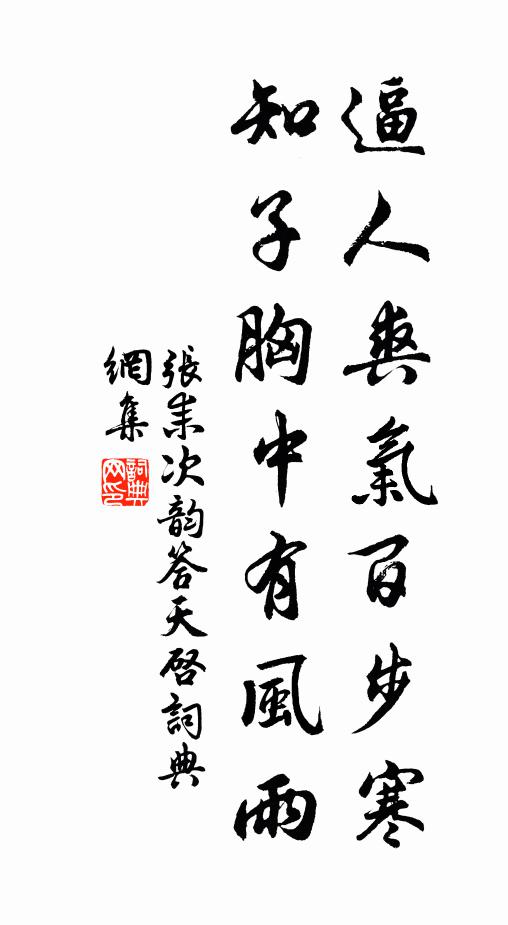 逼人爽氣百步寒
知子胸中有風雨
張耒次韵答天啓詞典
網集
詞典
网印